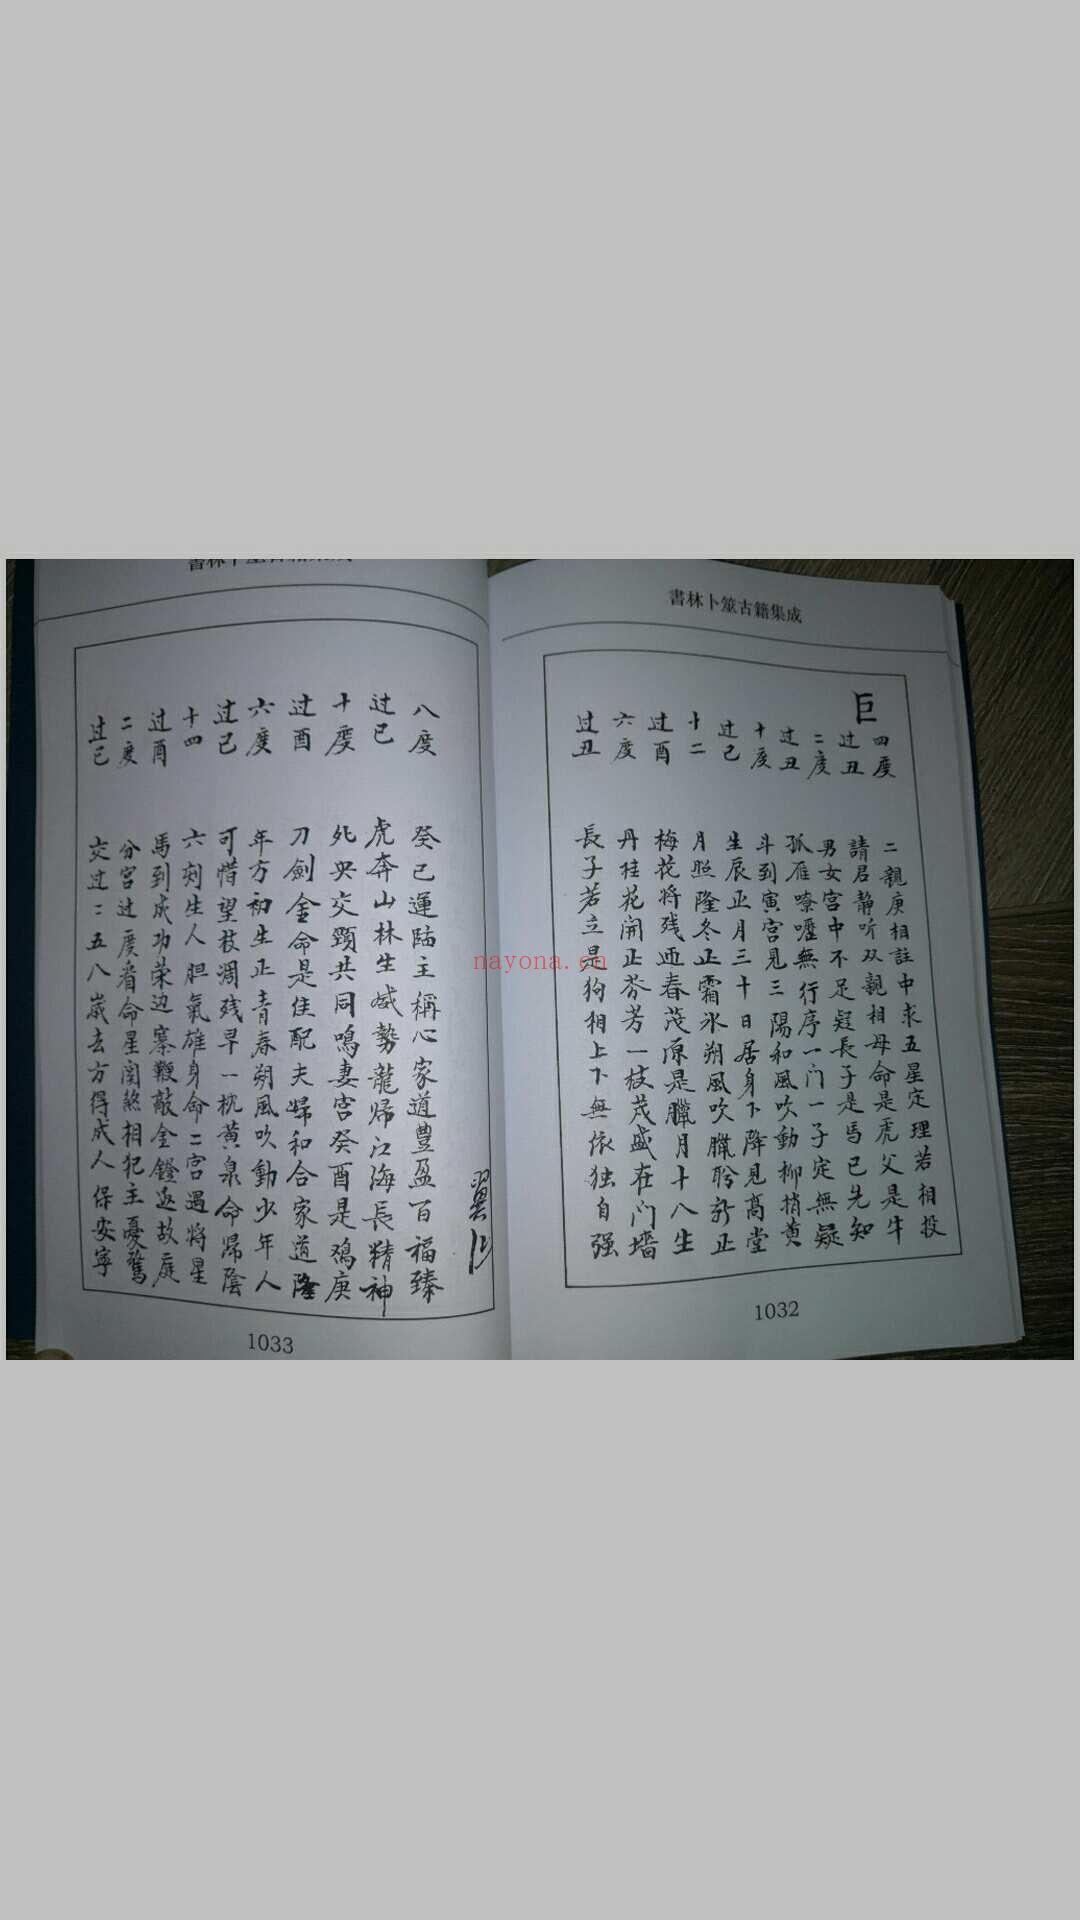 書林卜筮古籍集成
巨
四度 二親庚相註中求五星定理若相投
过丑 請君静听双親相母命是虎父是牛
二度 男女宫中不足疑長子是馬已先知
过丑 孤雁嘹嚦無行序一门一子定無疑
十度 斗到寅宫見三陽和風吹動柳梢黄
过己 生辰正月三十日居身下降見髙堂
十二 月照隆冬正霜氷朔風吹臘聆新正
过酉 梅花将残迊春茂原是臘月十八生
六度 丹桂花開止芬芳一枝茂盛在门墙
过丑 長子若立是狗相上下無依独自强
1032
書林卜筮古籍集成
翼
八度 癸己運陆主稱心家道豊盈百福臻
过己 虎奔山林生威勢龍帰江海長精神
十度 夗央交頸共同鳴妻宫癸酉是鴉庚
过酉 刀劍金命是佳配夫婦和合家道隆
六度 年方初生正青春朔風吹動少年人
过己 可惜望枝凋残早一枕黄泉命帰陰
十四 六刻生人胆氣雄身命二宫遇将星
过酉 馬到成功荣边寨鞭敲金鐙返故庭
二度 分宫过度看命星関煞相犯主憂驚
过己 交过二五八歲去方得成人保安寧
1033
nayona.cn